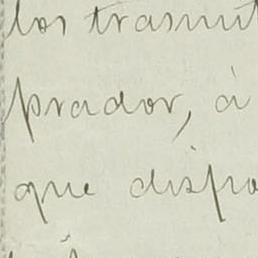 los trasmit
prador, á
que dispo